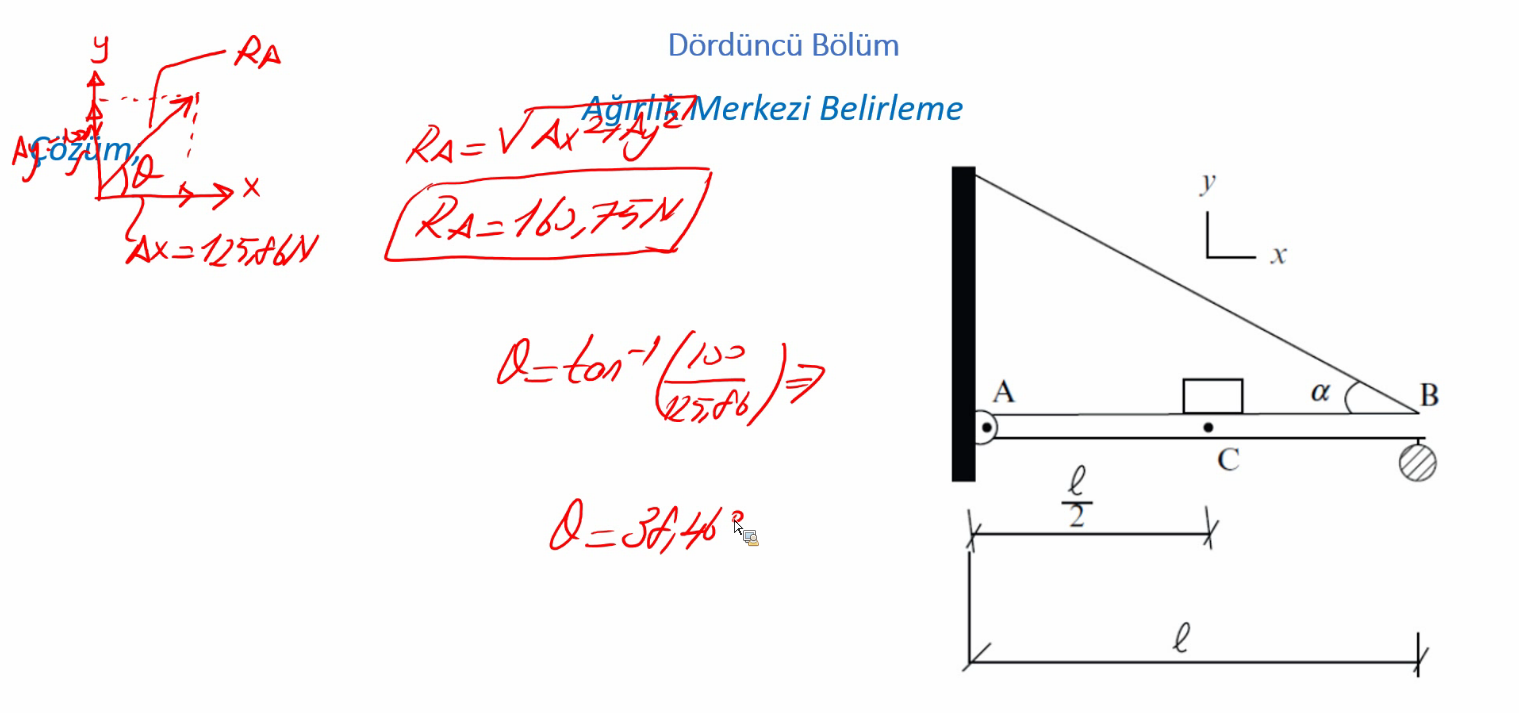 Dördüncü Bölüm
Ağırlık Merkezi Belirleme
Çözüm,
y
RA
θ
x
Ax=125,86N
RA=√Ax²+Ay²
RA=160,75N
θ=tan⁻¹(100/125,86)⇒
θ=38,46°
y
x
A
α
B
C
ℓ
2
ℓ